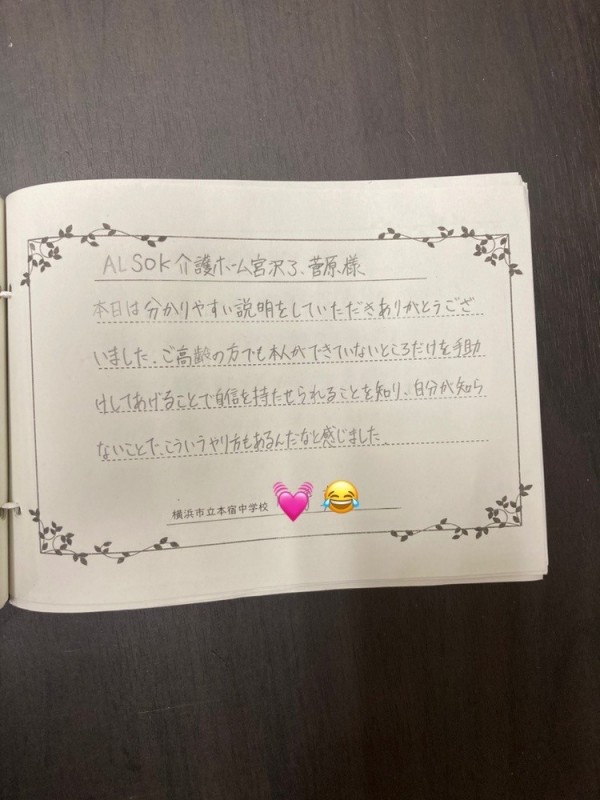 ALSOK介護ホーム宮沢3、菅原様
本日は分かりやすい説明をしていただきありがとうござ
いました。ご高齢の方でも本人ができていないところだけを手助
けしてあげることで自信を持たせられることを知り、自分が知ら
ないことで、こういうやり方もあるんだなと感じました。
横浜市立本宿中学校